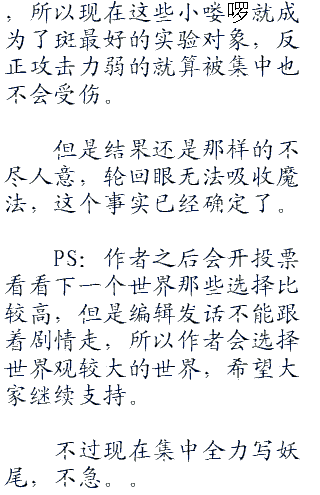 ，所以现在这些小喽啰就成
为了斑最好的实验对象，反
正攻击力弱的就算被集中也
不会受伤。
但是结果还是那样的不
尽人意，轮回眼无法吸收魔
法，这个事实已经确定了。
PS：作者之后会开投票
看看下一个世界那些选择比
较高，但是编辑发话不能跟
着剧情走，所以作者会选择
世界观较大的世界，希望大
家继续支持。
不过现在集中全力写妖
尾，不急。。